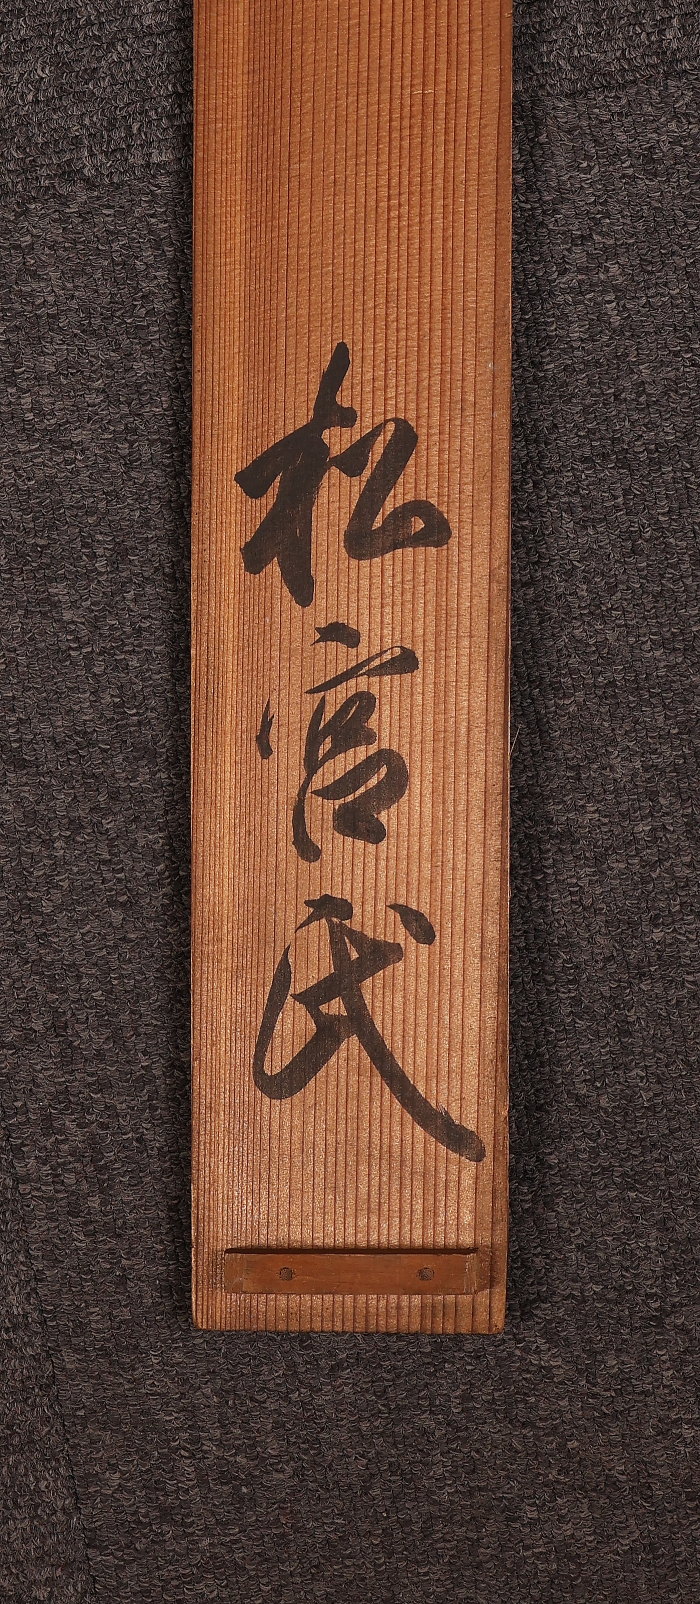 松宮氏